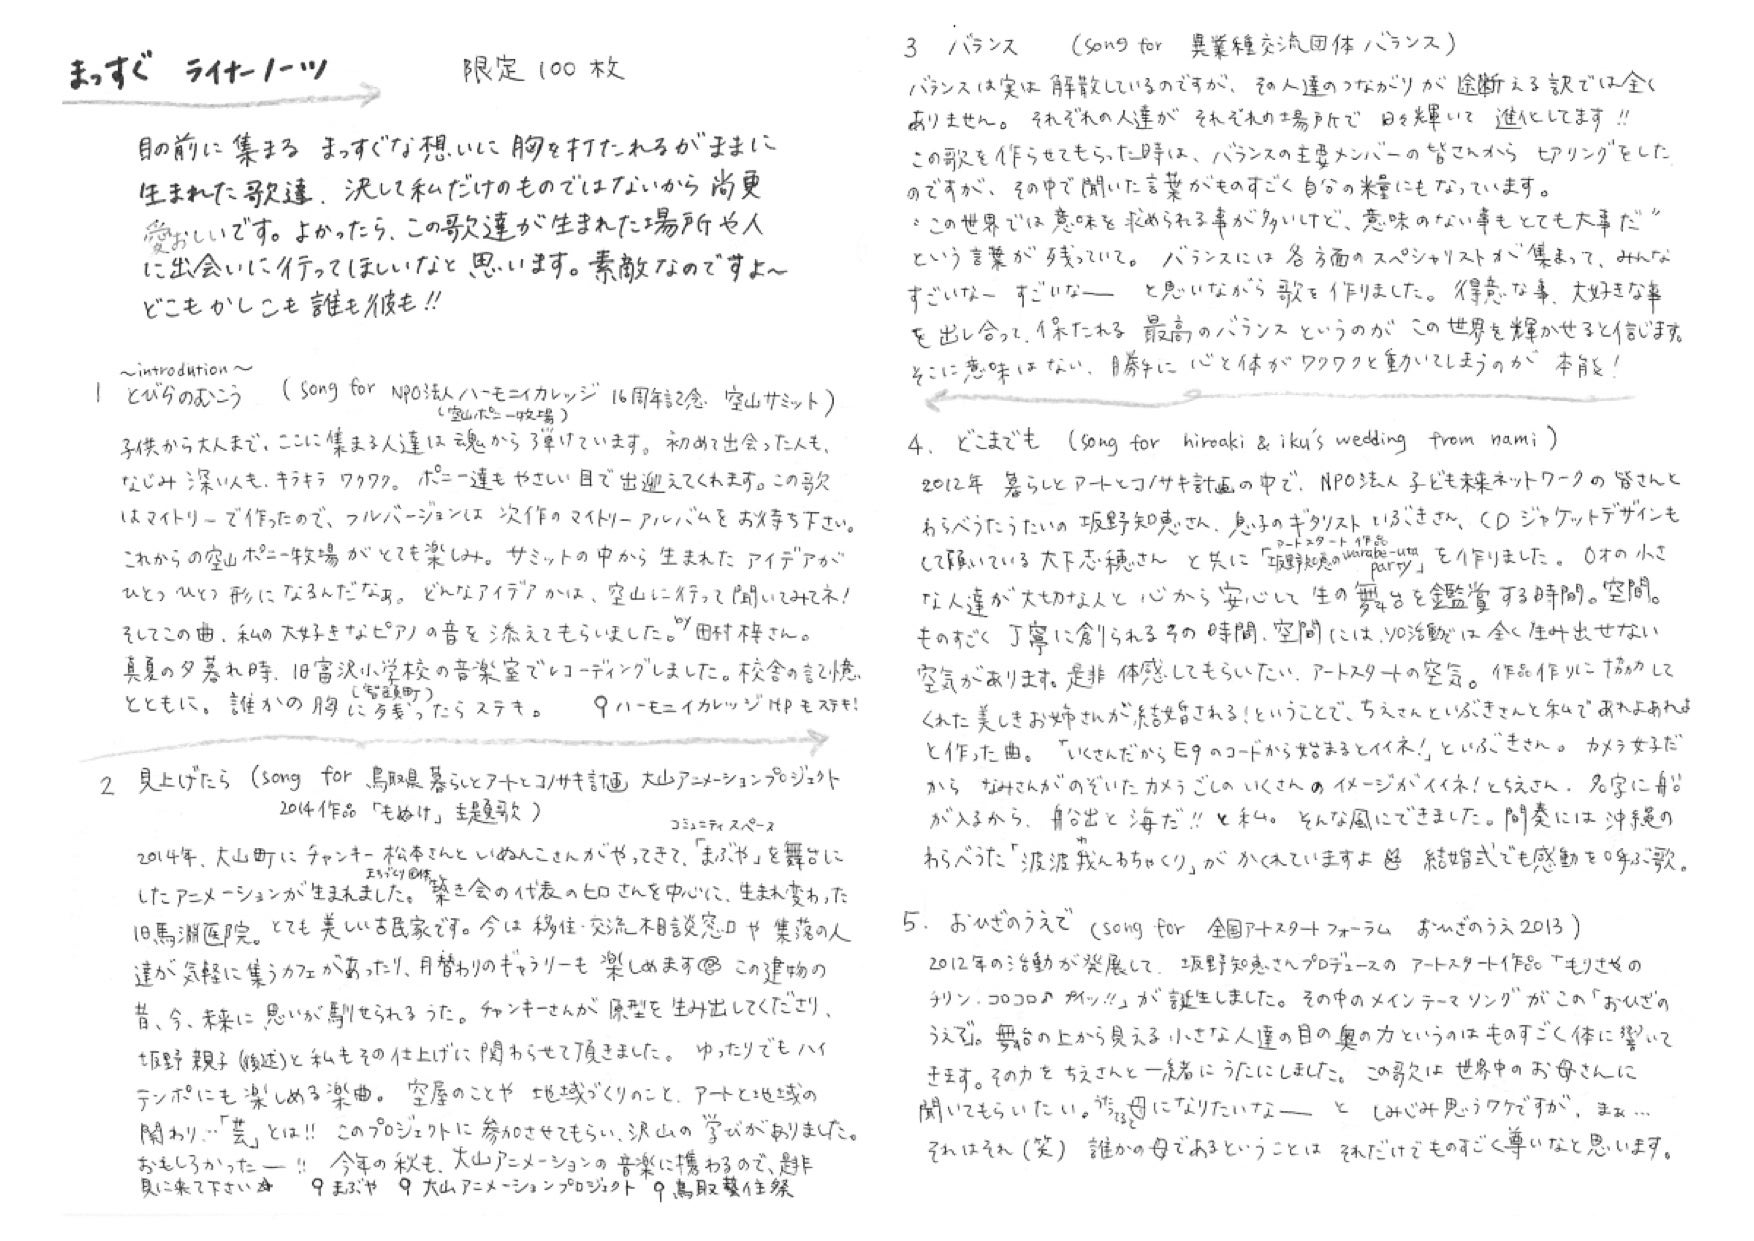 まっすぐ ライナーノーツ 限定100枚
目の前に集まる まっすぐな想いに胸を打たれるがままに
生まれた歌達、決して私だけのものではないから尚更
愛おしいです。よかったら、この歌達が生まれた場所や人
に出会いに行ってほしいなと思います。素敵なのですよ〜
どこもかしこも誰も彼も!!
〜introdution〜
1 とびらのむこう (song for NPO法人ハーモニィカレッジ 16周年記念 空山サミット)
(空山ポニー牧場)
子供から大人まで、ここに集まる人達は魂から弾けています。初めて出会った人も、
なじみ深い人も、キラキラワクワク。ポニー達もやさしい目で出迎えてくれます。この歌
はマイトリーで作ったので、フルバージョンは次作のマイトリーアルバムをお待ち下さい。
これからの空山ポニー牧場がとても楽しみ。サミットの中から生まれたアイデアが
ひとつひとつ形になるんだなぁ。どんなアイデアかは、空山に行って聞いてみてネ!
そしてこの曲、私の大好きなピアノの音を添えてもらいました。by 田村梓さん。
真夏の夕暮れ時、旧富沢小学校の音楽室でレコーディングしました。校舎の記憶
(智頭町)
とともに。誰かの胸に残ったらステキ。 ♀ハーモニィカレッジHPもステキ!
2 見上げたら (song for 鳥取県 暮らしとアートとコノサキ計画 大山アニメーションプロジェクト
2014作品「もぬけ」主題歌)
コミュニティスペース
2014年、大山町にチャンキー松本さんといぬんこさんがやってきて、「まぶや」を舞台に
まちづくり団体
したアニメーションが生まれました。築き会の代表のヒロさんを中心に、生まれ変わった
旧馬淵医院。とても美しい古民家です。今は移住・交流相談窓口や集落の人
達が気軽に集うカフェがあったり、月替わりのギャラリーも楽しめます この建物の
昔、今、未来に思いが馳せられるうた。チャンキーさんが原型を生み出してくださり、
坂野親子(後述)と私もその仕上げに関わらせて頂きました。ゆったりでもハイ
テンポにも楽しめる楽曲。空屋のことや地域づくりのこと、アートと地域の
関わり…「芸」とは!! このプロジェクトに参加させてもらい、沢山の学びがありました。
おもしろかったー!! 今年の秋も、大山アニメーションの音楽に携わるので、是非
見に来て下さい☆ ♀まぶや ♀大山アニメーションプロジェクト ♀鳥取藝住祭
3 バランス (song for 異業種交流団体バランス)
バランスは実は解散しているのですが、その人達のつながりが途断える訳では全く
ありません。それぞれの人達がそれぞれの場所で日々輝いて進化してます!!
この歌を作らせてもらった時は、バランスの主要メンバーの皆さんからヒアリングをした
のですが、その中で聞いた言葉がものすごく自分の糧にもなっています。
“この世界では意味を求められる事が多いけど、意味のない事もとても大事だ”
という言葉が残っていて。バランスには各方面のスペシャリストが集まって、みんな
すごいなー すごいなー と思いながら歌を作りました。得意な事、大好きな事
を出し合って、保たれる最高のバランスというのがこの世界を輝かせると信じます。
そこに意味はない、勝手に心と体がワクワクと動いてしまうのが本能!
4. どこまでも (song for hiroaki & iku's wedding from nami)
2012年 暮らしとアートとコノサキ計画の中で、NPO法人子ども未来ネットワークの皆さんと
わらべうたうたいの坂野知恵さん、息子のギタリストいぶきさん、CDジャケットデザインも
アートスタート作品
して頂いている大下志穂さんと共に「坂野知恵のwarabe-uta party」を作りました。0才の小さ
な人達が大切な人と心から安心して生の舞台を鑑賞する時間。空間。
ものすごく丁寧に創られるその時間、空間には、ソロ活動では全く生み出せない
空気があります。是非体感してもらいたい、アートスタートの空気。作品作りに協力して
くれた美しきお姉さんが結婚される!ということで、ちえさんといぶきさんと私であれよあれよ
と作った曲。「いくさんだからE9のコードから始まるとイイネ!」といぶきさん。カメラ女子だ
から なみさんがのぞいたカメラごしのいくさんのイメージがイイネ!とちえさん。名字に船
が入るから、船出と海だ!!と私。そんな風にできました。間奏には沖縄の
わらべうた「波波我んわちゃくり」がかくれていますよ 結婚式でも感動を呼ぶ歌。
5. おひざのうえで (song for 全国アートスタートフォーラム おひざのうえ2013)
2012年の活動が発展して、坂野知恵さんプロデュースのアートスタート作品「もりさやの
チリン・コロコロ♪ カイッ!!」が誕生しました。その中のメインテーマソングがこの「おひざの
うえで」。舞台の上から見える小さな人達の目の奥の力というのはものすごく体に響いて
きます。その力をちえさんと一緒にうたにしました。この歌は世界中のお母さんに
聞いてもらいたい。うたえる母になりたいなー と しみじみ思うワケですが、まぁ…
それはそれ(笑) 誰かの母であるということは それだけでものすごく尊いなと思います。